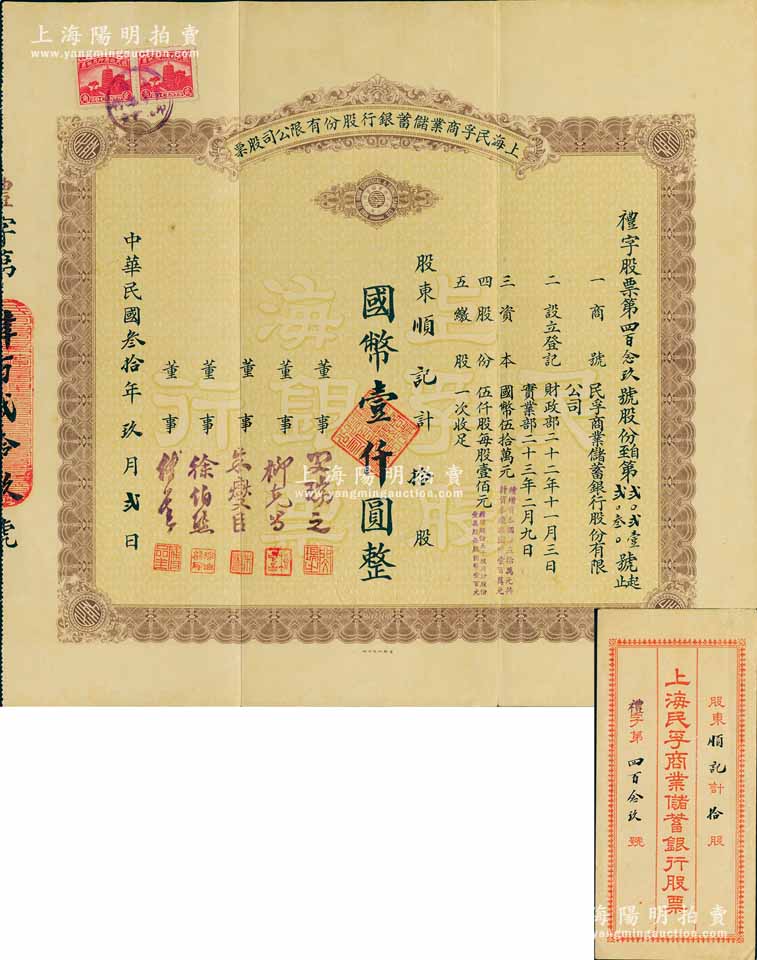 上海陽明拍賣
www.yangmingauction.com
上海陽明拍賣
www.yangmingauction.com
上海民孚商業儲蓄銀行股份有限公司股票
禮字股票第四百念玖號股份自第弍〇弍壹號起至弍〇叁〇號止
一 商號 民孚商業儲蓄銀行股份有限公司
二 設立登記 財政部二十二年十一月三日
實業部二十三年二月九日
三 資本 國幣伍拾萬元
四 股份 伍仟股每股壹佰元
五 繳股 一次收足
股東順記計拾股
國幣壹仟圓整
董事
董事 柳
董事 朱燮臣
董事 徐伯熊
董事
中華民國叁拾年玖月弍日
禮字第肆百弍拾玖號
上海民孚銀行股票
上海陽明拍賣
www.yangmingauction.com
股東順記計拾股
上海民孚商業儲蓄銀行股票
禮字第四百念玖號
上海陽明拍賣
www.yangmingauction.com